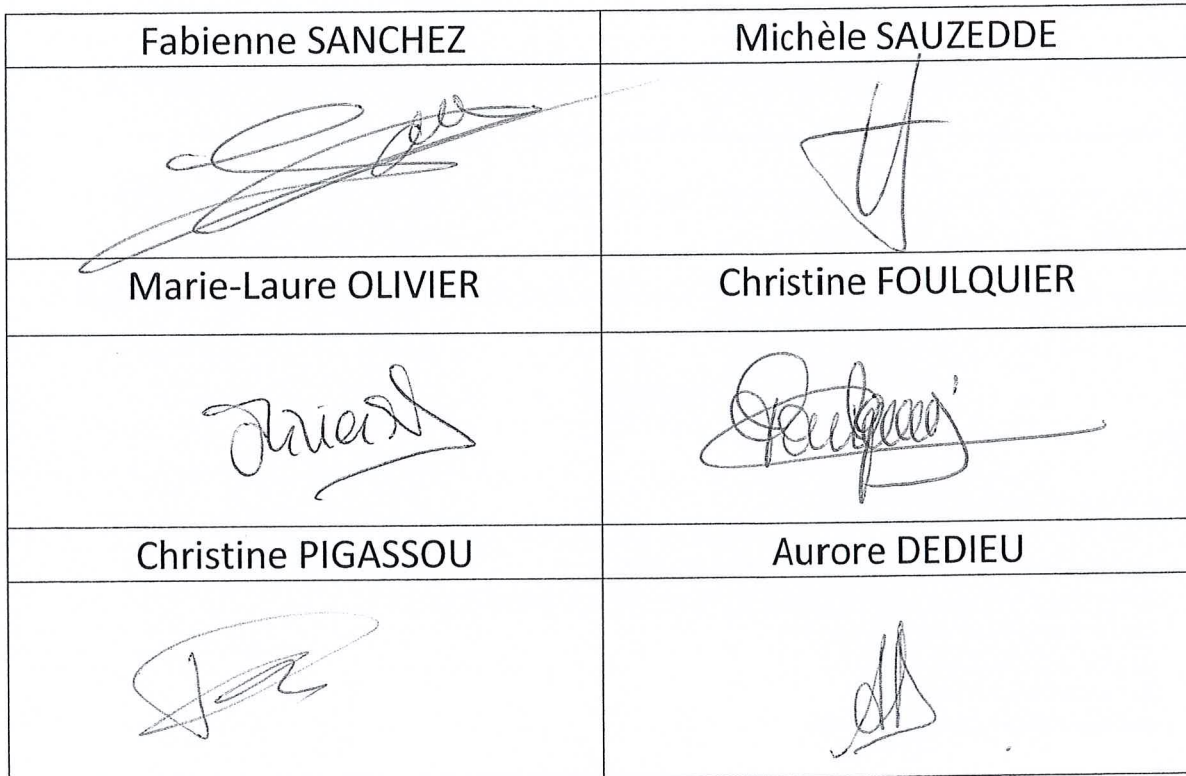 Fabienne SANCHEZ
Michèle SAUZEDDE
Marie-Laure OLIVIER
Christine FOULQUIER
Olivier
Christine PIGASSOU
Aurore DEDIEU